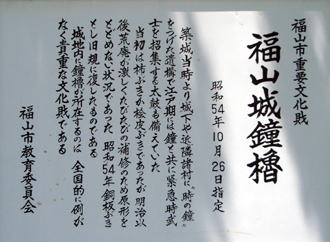 福山市重要文化財
福山城鐘櫓
昭和54年10月26日指定
築城当時より城下や近隣諸村に、「時の鐘」
をうった遺構で江戸期には鐘と共に緊急時武
士を招集する太鼓も備えていた
当初は柿ぶきか桧皮ぶきであったが明治以
後荒廃が激しくたびたびの補修のため原形を
とどめない状況であった 昭和54年銅板ぶき
とし旧規に復したものである
城地内に鐘櫓が所在するのは 全国的に例が
なく貴重な文化財である
福山市教育委員会